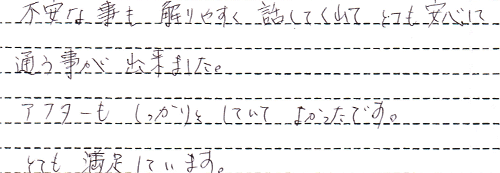 不安な事も 解りやすく 話してくれて とても 安心に
通う事が 出来ました。
アフターも しっかりと していて よかったです。
とても 満足しています。